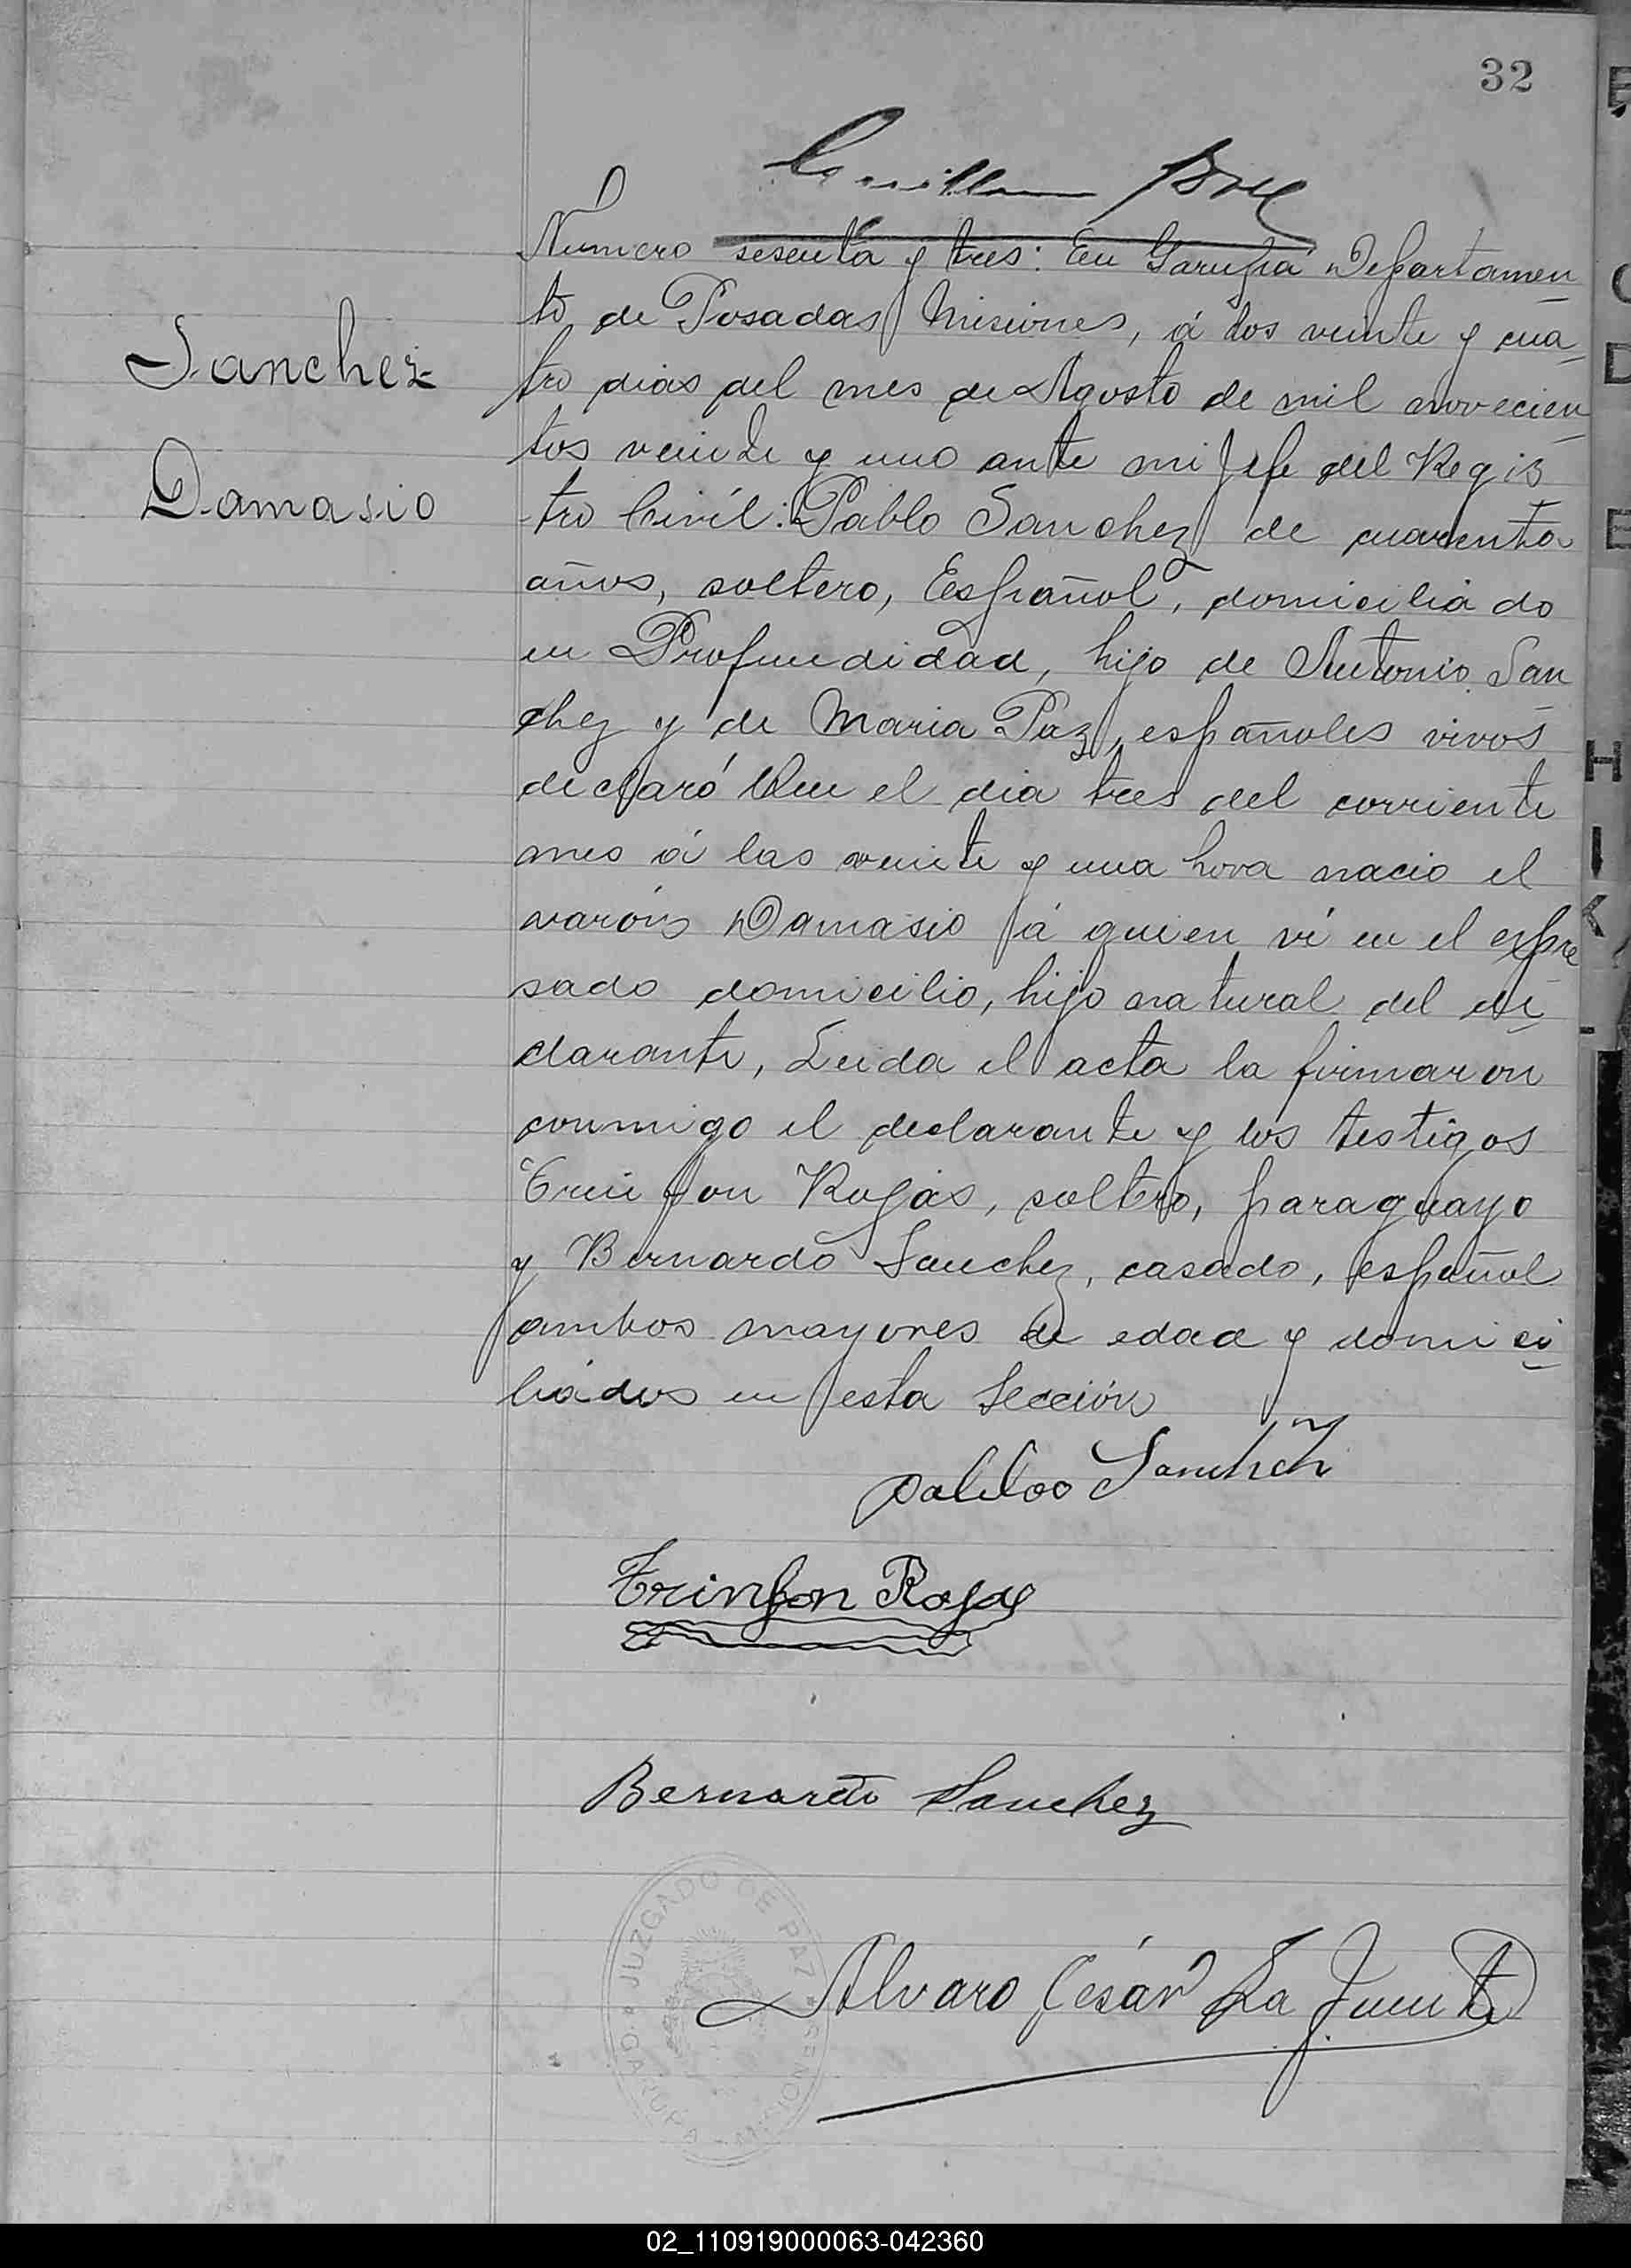 32
Numero sesenta y tres: En Garupá Departamen
to de Posadas Misiones, á los veinte y cua
Sanchez
tro dias del mes de Agosto de mil novecien
tos veinte y uno ante mi Jefe del Regis
Damasio
tro Civíl: Pablo Sanchez de cuarenta
años, soltero, Español, domiciliado
en Profundidad, hijo de Antonio San
chez y de Maria Paz, españoles vivos
declaró Que el dia tres del corriente
mes á las veinte y una hora nacio el
varón Damasio á quien ví en el expre
sado domicilio, hijo natural del de
clarante, Leida el acta la firmaron
conmigo el declarante y los testigos
Trinfon Rojas, soltero, paraguayo
y Bernardo Sanchez, casado, español
ambos mayores de edad y domici
liados en esta Sección
Pablo Sanchez
Trinfon Rojas
Bernardo Sanchez
JUZGADO DE PAZ * MISIONES * GARUPA
Alvaro César La Fuente
E
C
D
E
H
I
K
02_110919000063-042360